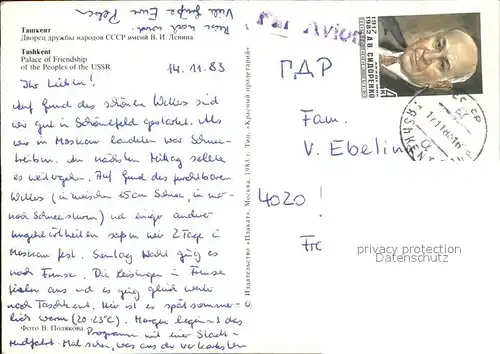 Ташкент
Дворец дружбы народов СССР имени В. И. Ленина.
Tashkent
Palace of Friendship
of the Peoples of the USSR.
14.11.83
Ihr Lieben!
Auf Grund des schönen Wetters sind
wir gut in Schönefeld gestartet. Als
wir in Moskau landeten war Schnee-
treiben. Am nächsten Mittag sollte
es weitergehen. Auf Grund des furchtbaren
Wetters (in 15 cm Schnee,
noch Schneesturm) und einiger anderer
Ungelegenheiten saßen wir 2 Tage in
Moskau fest. Sonntag Nacht ging es
nach Frunse. Die Leistungen in Frunse
fielen aus und es ging gleich weiter
nach Taschkent. Hier ist es spätsommer-
lich warm (20-23°C). Morgen beginnt das
Programm mit einer Stadt-
rundfahrt. Mal sehen, was aus der
Viele Grüße Eure
Par Avion
© Издательство «Плакат». Москва, 1983 г. Тип. «Красный пролетарий»
Фото В. Полякова
1917
1982
А.В. СИДОРЕНКО
ГДР
Fam.
V. Ebeling
4020!
propertyOfCopyright